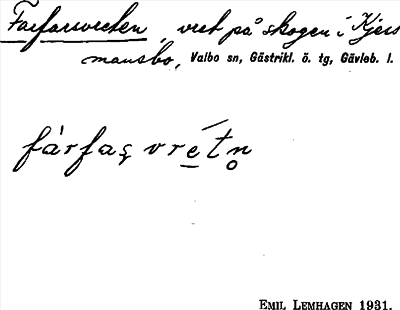 Farfarsvreten, vret på skogen i Kjers
mansbo, Valbo sn, Gästrikl. ö. tg, Gävleb. l.
fàrfaş vré̲tn̥
EMIL LEMHAGEN 1931.